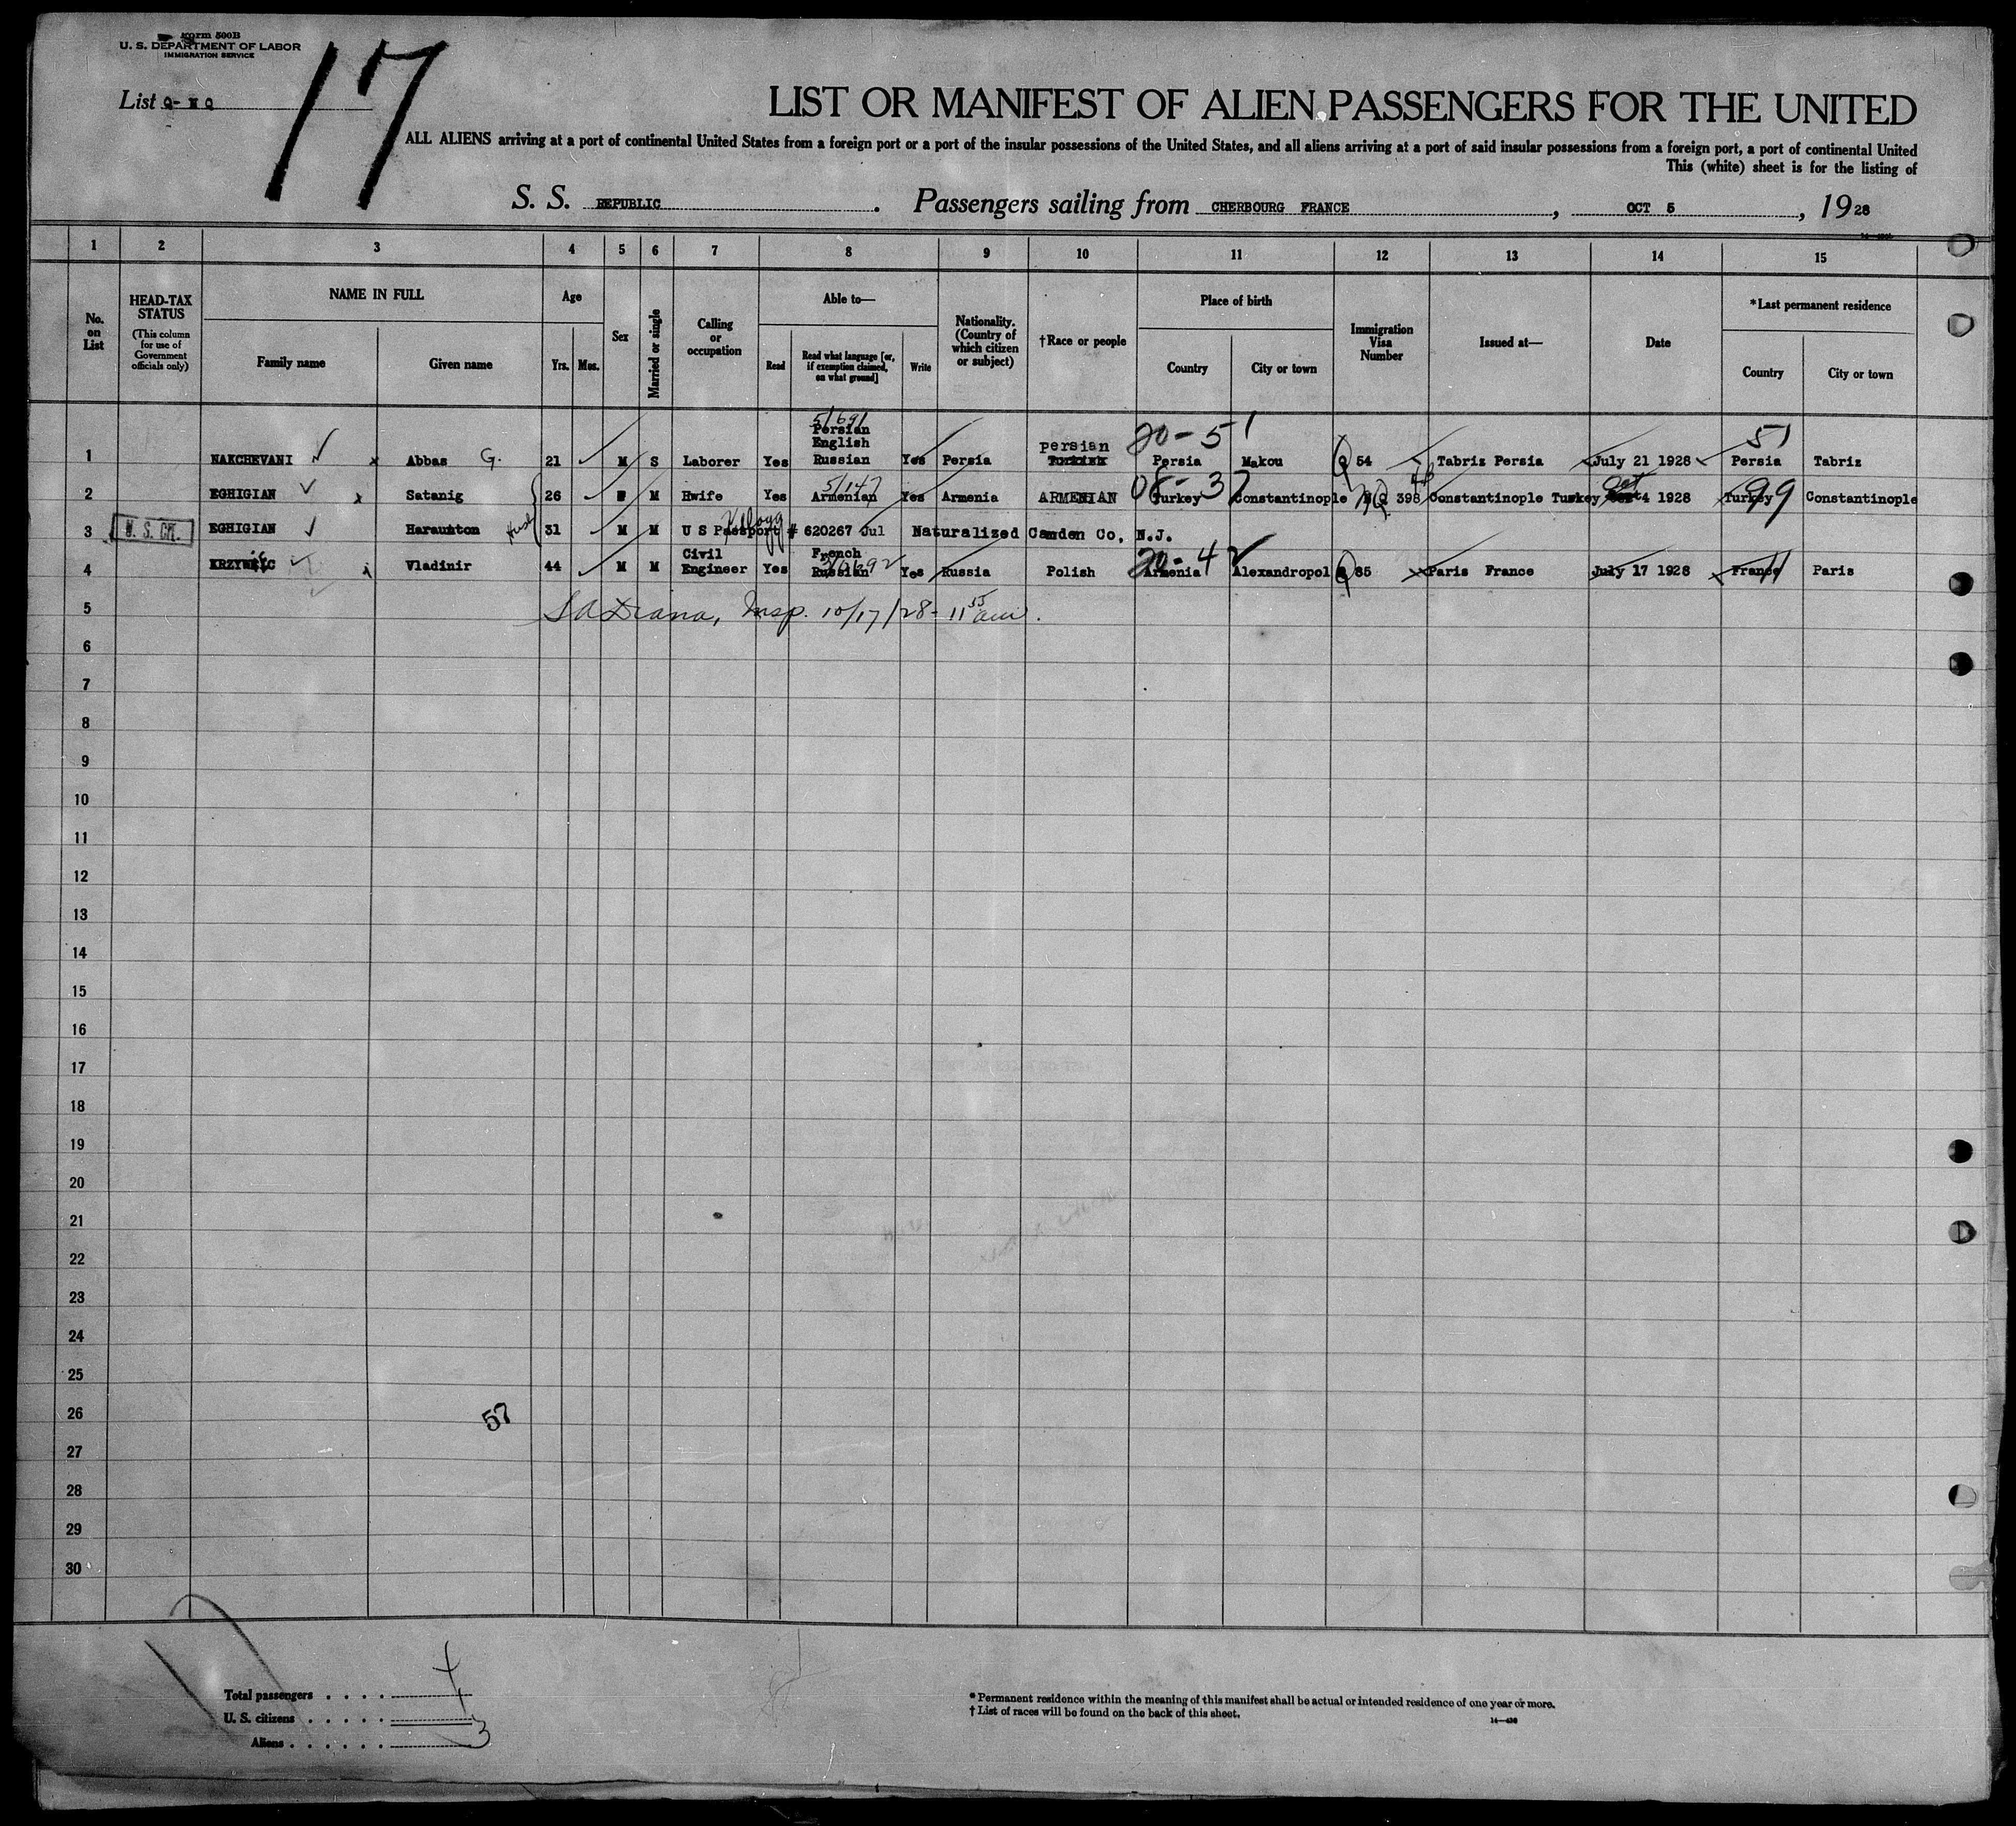 Form 500B
U. S. DEPARTMENT OF LABOR
IMMIGRATION SERVICE
17
List Q- N Q
LIST OR MANIFEST OF ALIEN PASSENGERS FOR THE UNITED
ALL ALIENS arriving at a port of continental United States from a foreign port or a port of the insular possessions of the United States, and all aliens arriving at a port of said insular possessions from a foreign port, a port of continental United
This (white) sheet is for the listing of
S. S. REPUBLIC. Passengers sailing from CHERBOURG FRANCE, OCT 5, 1928
1 2 3 4 5 6 7 8 9 10 11 12 13 14 15
No. on List
HEAD-TAX STATUS (This column for use of Government officials only)
NAME IN FULL
Family name Given name
Age
Yrs. Mos.
Sex
Married or single
Calling or occupation
Able to—
Read Read what language [or, if exemption claimed, on what ground] Write
Nationality. (Country of which citizen or subject)
†Race or people
Place of birth
Country City or town
Immigration Visa Number
Issued at—
Date
*Last permanent residence
Country City or town
5/691
Persian
English persian 20-51 51
1 NAKCHEVANI Abbas G. 21 M S Laborer Yes Russian Yes Persia Turkish Persia Makou Q 54 Tabriz Persia July 21 1928 Persia Tabriz
5/147 08-37 Oct 99
2 EGHIGIAN Satanig 26 F M Hwife Yes Armenian Yes Armenia ARMENIAN Turkey Constantinople NQ 398 Constantinople Turkey 4 1928 Turkey Constantinople
Kellogg
3 U. S. CIT. EGHIGIAN Haraunton Husb 31 M M U S Passport # 620267 Jul Naturalized Camden Co, N.J.
Civil French 20-42
4 KRZYWIC Vladinir 44 M M Engineer Yes Russian Yes Russia Polish Armenia Alexandropol Q 85 Paris France July 17 1928 France Paris
5 Insp. 10/17/28- 11 55 am.
6
7
8
9
10
11
12
13
14
15
16
17
18
19
20
21
22
23
24
25
26 57
27
28
29
30
Total passengers . . . . 4
U. S. citizens . . . . . 1
Aliens . . . . . . 3
* Permanent residence within the meaning of this manifest shall be actual or intended residence of one year or more.
† List of races will be found on the back of this sheet.
14—436